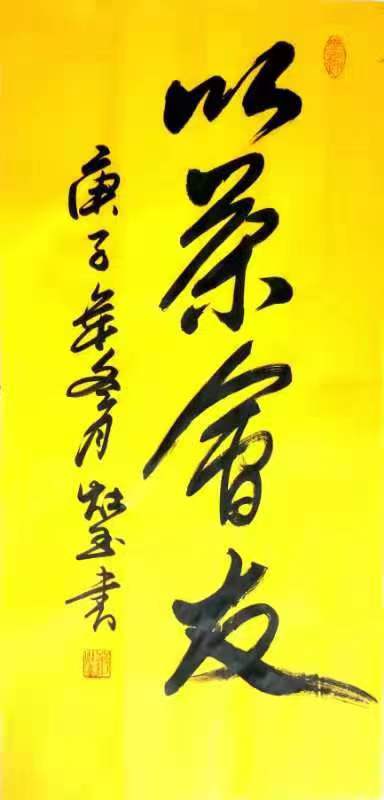 以茶會友
庚子年冬月 玉書